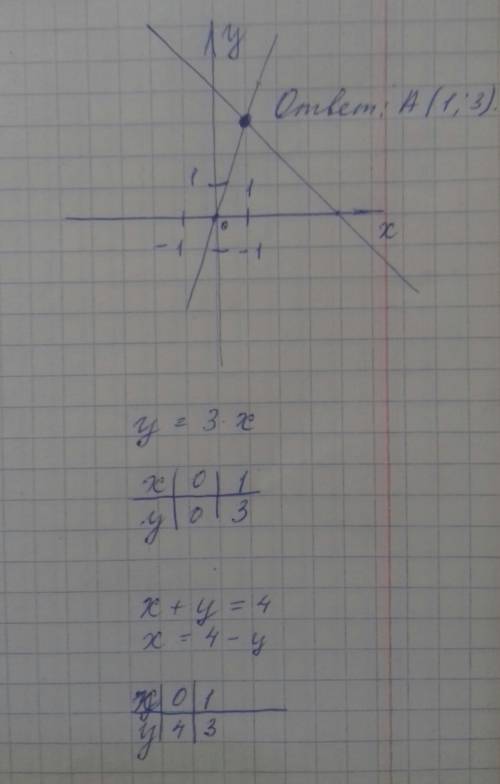 y
Ответ: A(1; 3).
1 1
0
x
-1 -1
y = 3·x
x | 0 | 1
y | 0 | 3
x + y = 4
x = 4 - y
x | 0 | 1
y | 4 | 3